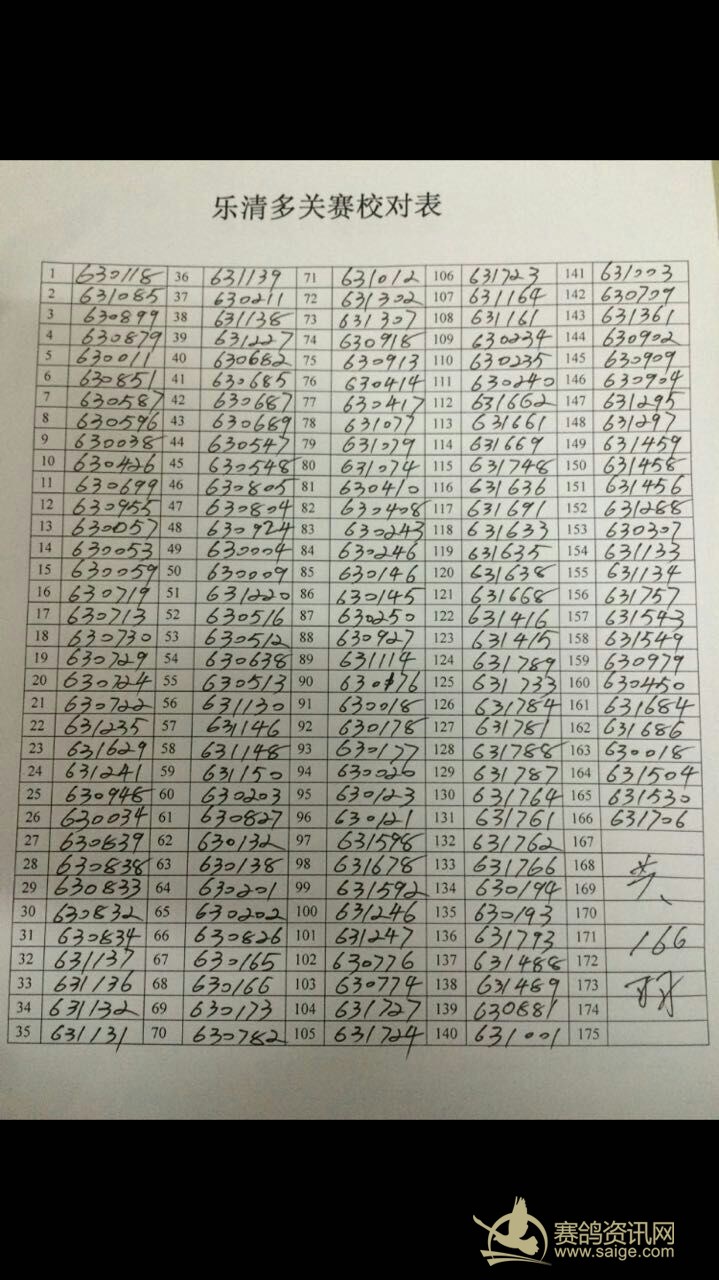 乐清多关赛校对表
1 630118 36 631139 71 631012 106 631723 141 631003
2 631085 37 630211 72 631302 107 631164 142 630709
3 630899 38 631138 73 631307 108 631161 143 631361
4 630879 39 631227 74 630918 109 630234 144 630902
5 630011 40 630682 75 630913 110 630235 145 630909
6 630851 41 630685 76 630414 111 630240 146 630904
7 630587 42 630687 77 630417 112 631662 147 631295
8 630596 43 630689 78 631077 113 631661 148 631297
9 630038 44 630547 79 631079 114 631669 149 631459
10 630426 45 630548 80 631074 115 631748 150 631458
11 630699 46 630805 81 630410 116 631636 151 631456
12 630955 47 630804 82 630408 117 631691 152 631288
13 630057 48 630924 83 630243 118 631633 153 630307
14 630053 49 630004 84 630246 119 631635 154 631133
15 630059 50 630009 85 630146 120 631638 155 631134
16 630719 51 631220 86 630145 121 631668 156 631757
17 630713 52 630516 87 630250 122 631416 157 631543
18 630730 53 630512 88 630927 123 631415 158 631549
19 630729 54 630638 89 631114 124 631789 159 630979
20 630724 55 630513 90 630176 125 631733 160 630450
21 630722 56 631130 91 630018 126 631784 161 631684
22 631235 57 631146 92 630178 127 631781 162 631686
23 631629 58 631148 93 630177 128 631788 163 630018
24 631241 59 631150 94 630020 129 631787 164 631504
25 630948 60 630203 95 630123 130 631764 165 631530
26 630034 61 630827 96 630121 131 631761 166 631706
27 630839 62 630132 97 631598 132 631762 167
28 630838 63 630138 98 631678 133 631766 168 共、
29 630833 64 630201 99 631592 134 630194 169
30 630832 65 630202 100 631246 135 630193 170
31 630834 66 630826 101 631247 136 631793 171 166
32 631137 67 630165 102 630776 137 631488 172
33 631136 68 630166 103 630774 138 631489 173 羽
34 631132 69 630173 104 631727 139 630881 174
35 631131 70 630782 105 631724 140 631001 175
赛鸽资讯网
www.saige.com